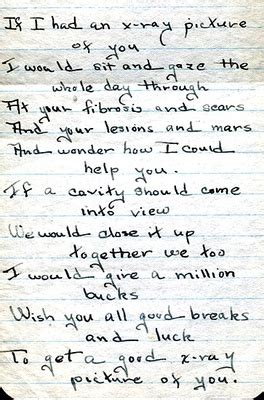 If I had an x-ray picture
of you
I would sit and gaze the
whole day through
At your fibrosis and scars
And your lesions and mars
And wonder how I could
help you.
If a cavity should come
into view
We would close it up
together we too
I would give a million
bucks
Wish you all good breaks
and luck
To get a good x-ray
picture of you.